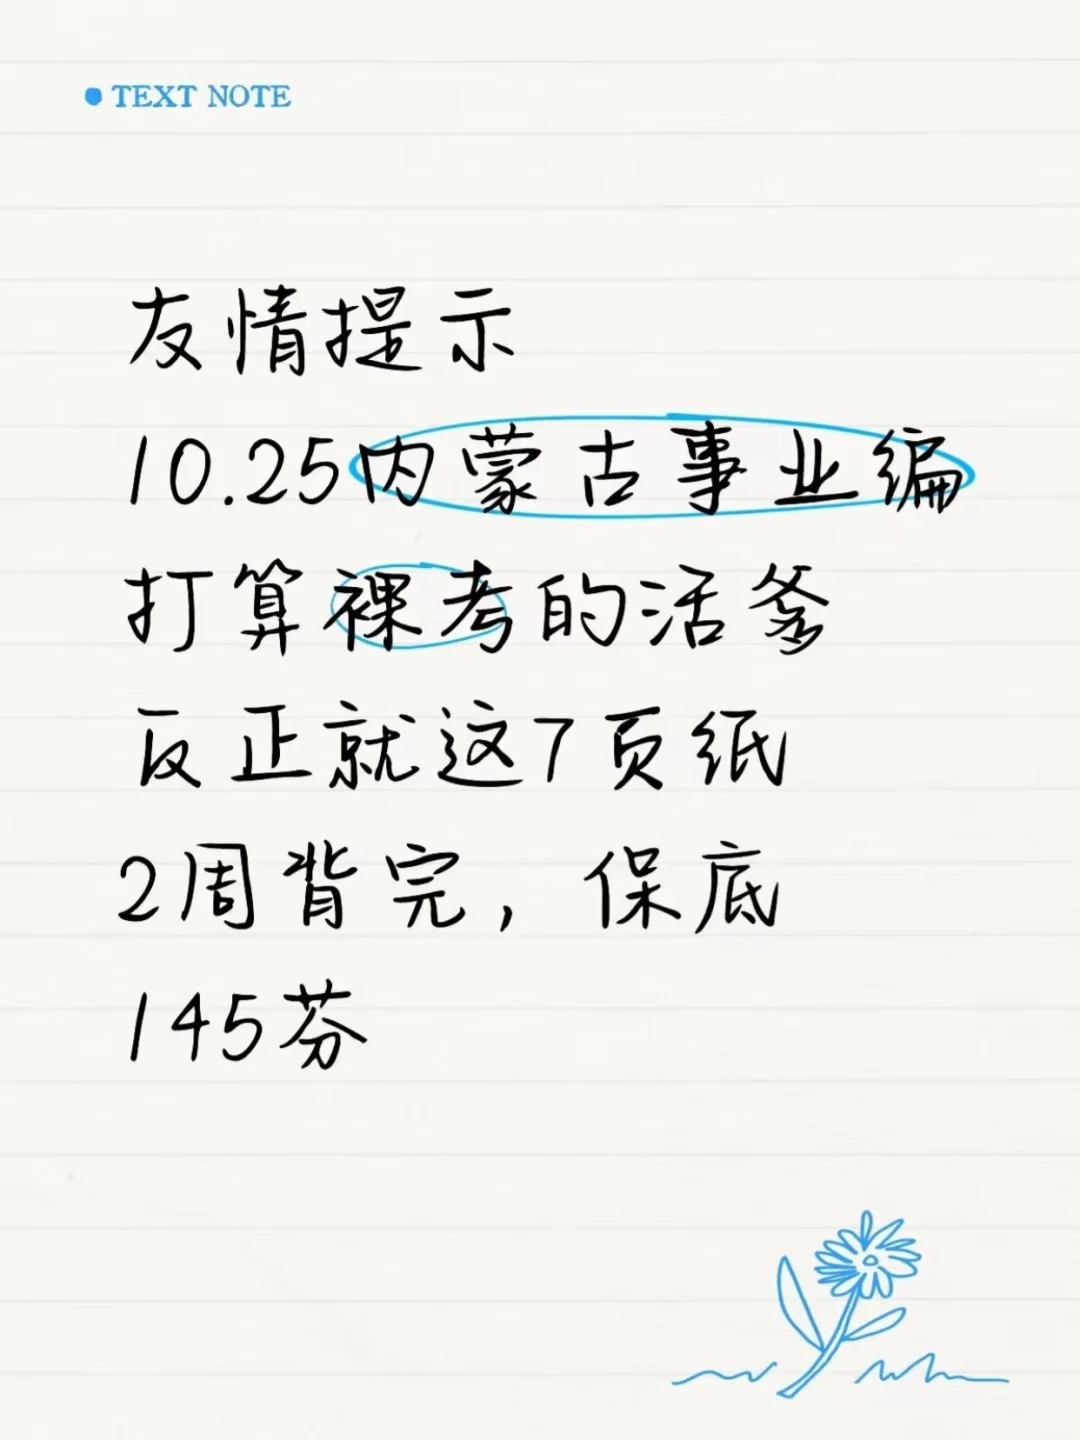 TEXT NOTE
友情提示
10.25内蒙古事业编
打算裸考的活爹
反正就这7页纸
2周背完，保底
145芬